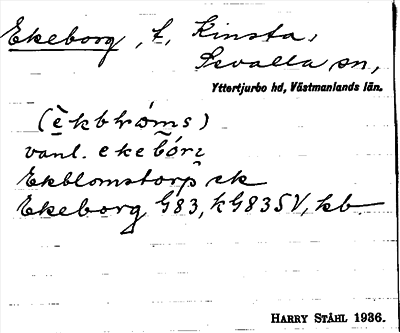 Ekeborg, t, Kinsta,
Svalla sn,
Yttertjurbo hd, Västmanlands län.
vanl.
Ekblomstorp ek
Ekeborg G83, kG83SV, kb
HARRY STÅHL 1936.